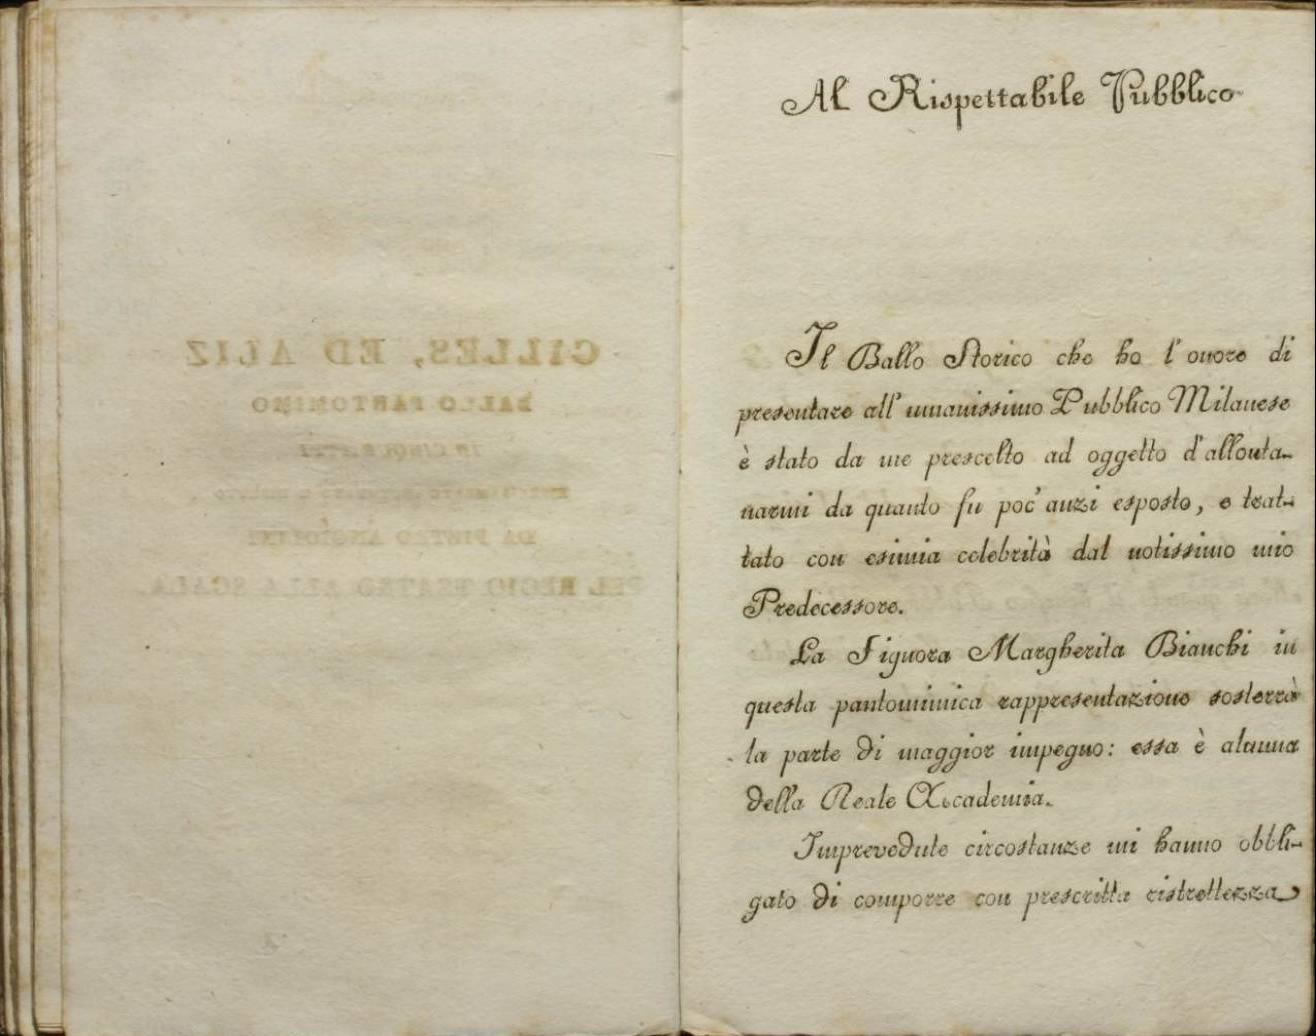 GILLES, ED ALIZ
BALLO PANTOMIMO
IN CINQUE ATTI
DA PIETRO ANGIOLINI
NEL REGIO TEATRO ALLA SCALA.
Al Rispettabile Pubblico
Il Ballo Storico che ho l'onore di
presentare all'umanissimo Pubblico Milanese
è stato da me prescelto ad oggetto d'allonta-
narmi da quanto fu poc'anzi esposto, e trat-
tato con esimia celebrità dal notissimo mio
Predecessore.
La Signora Margherita Bianchi in
questa pantomimica rappresentazione sosterrà
la parte di maggior impegno: essa è alunna
della Reale Accademia.
Imprevedute circostanze mi hanno obbli-
gato di comporre con prescritta ristrettezza